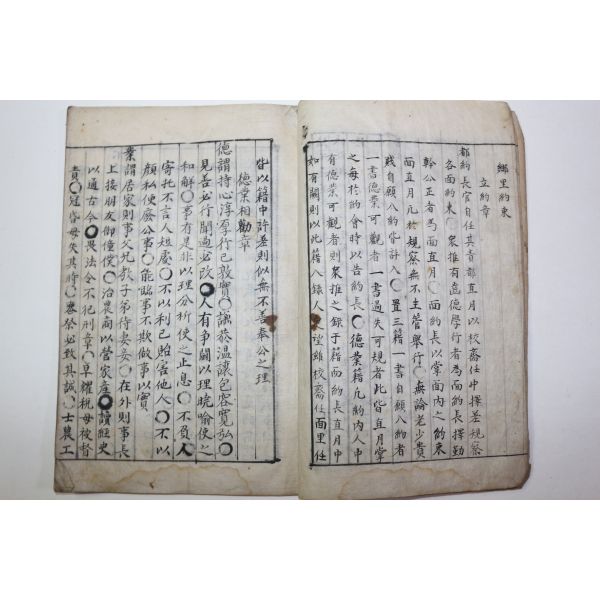 鄕里約束
立約章
都約長官自任其責都直月以校齋任中擇差規察
各面約束○衆推有齒德學行者爲面約長擇勤
幹公正者爲面直月○面約長以掌面內之約束
面直月凡於規察無不主管擧行○無論老少貴
賤自願入約皆計入○置三籍一書自願入約者
一書德業可觀者一書過失可規者此皆直月掌
之每於約會時以告約長○德業籍凡約內人中
有德業可觀者則衆推之錄于籍面約長直月中
如有闕則以此籍入錄人 望雖校齋任面里任
皆以籍中許差則似無不善奉公之理
德業相勸章
德謂持心淳 行己敦實○謙於溫讓包容寬弘○
見善必行聞過必改○人有爭鬪以理曉喩使之
和解○事有是非以理分析使之止息○不負人
寄托不言人短處○不以利己貽害他人○不以
顔私使廢公事○能臨事不欺做事以實
業謂居家則事父兄敎子弟待妻妾○在外則事長
上接朋友御僮僕○治農商以營家産○讀經史
以通古今○畏法令不犯刑章○早 租稅毋被督
責○冠昏毋失其時○喪祭必致其誠○士農工